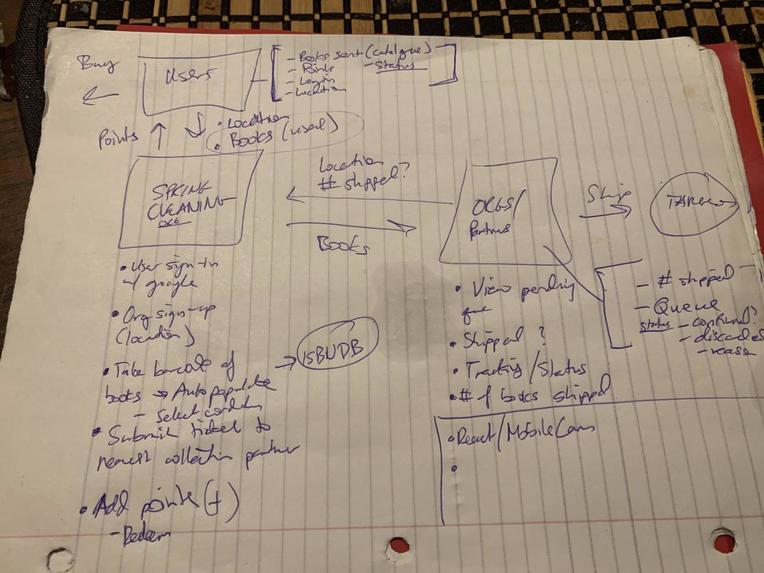 Buy
Users
- Books sent (catalogue)
- Points - Status
- Login
- Location
Points
• Location
• Books (used)
SPRING
CLEANING
ORG
Location
# shipped?
Books
ORGS/
Partners
Ship
• User sign-in
w/ google
• Org sign-up
(location)
• Take barcode of
books → Autopopulate
- Select condition
→ ISBNDB
• Submit ticket to
nearest collection partner
• Add points (+)
- Redeem
• View pending
• Shipped?
• Tracking/Status
• # of books shipped
- # shipped
- Queue
status - confirmed?
- discarded
- reason
• React/Mobile Cam
•